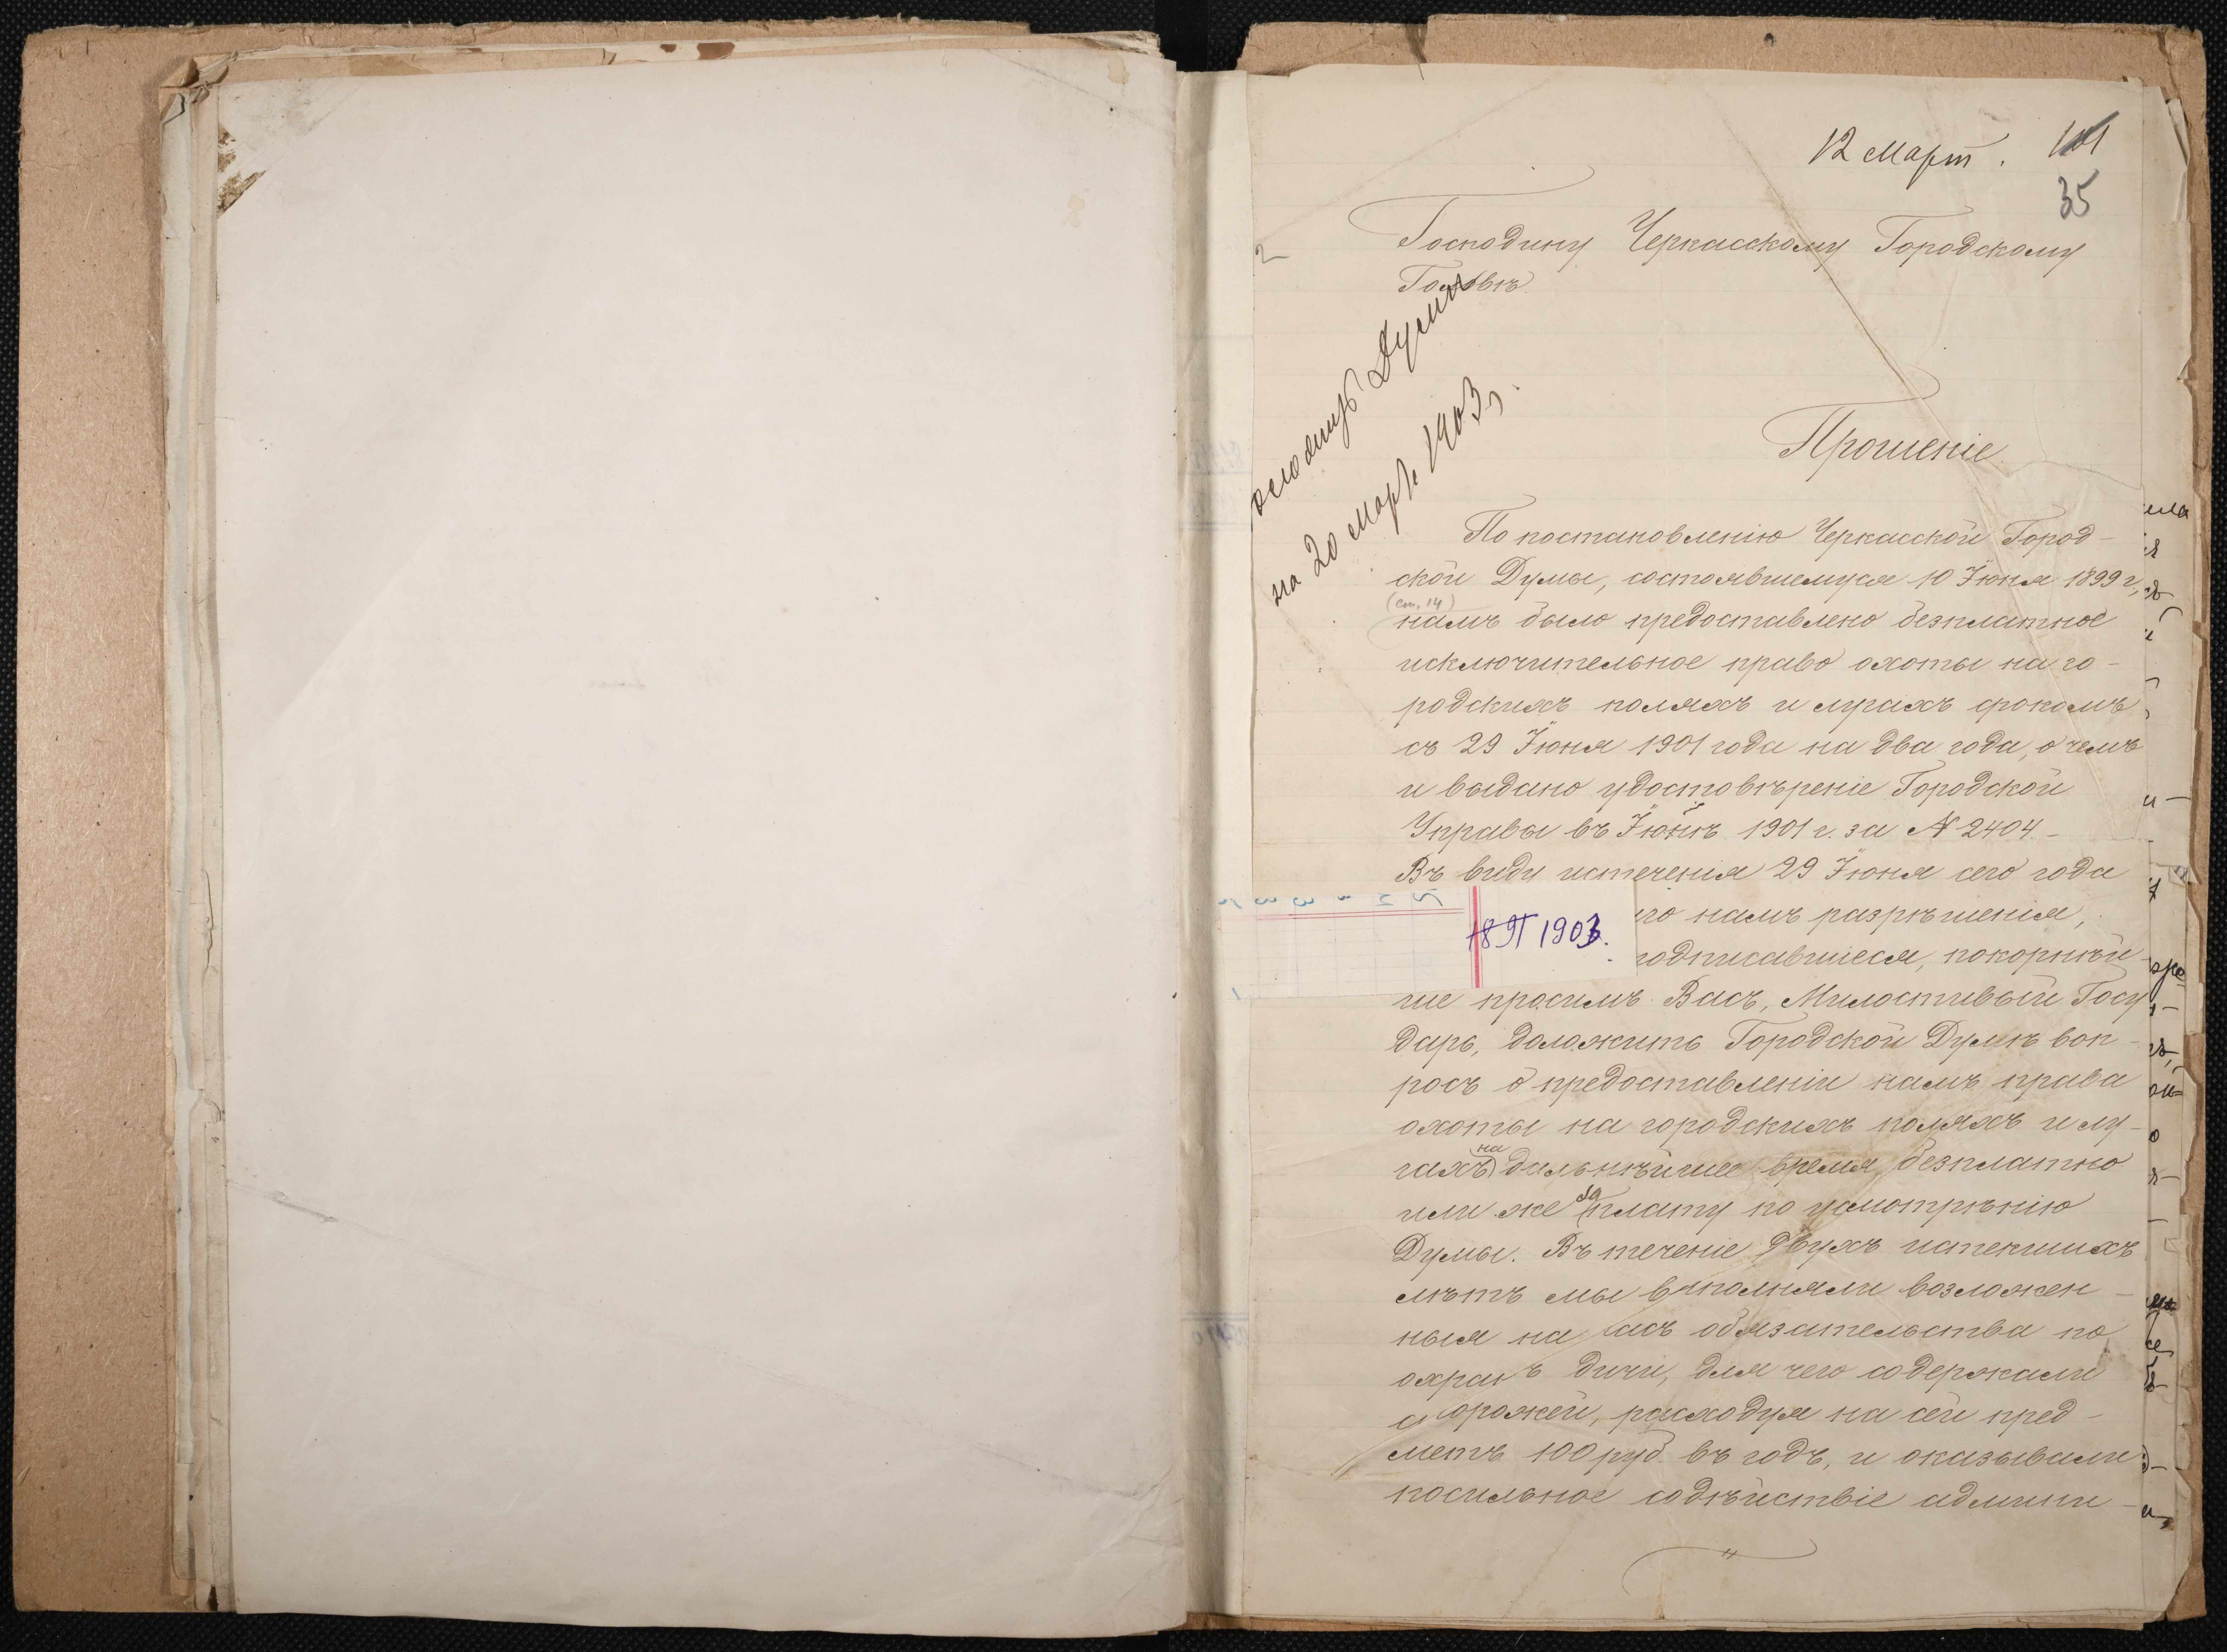 12 Март. 101
35
Господину Черкасскому Городскому
Головѣ.
Думы
на 20 Марта 1903 г.
Прошеніе
По постановленію Черкасской Город-
ской Думы, состоявшемуся 10 Іюня 1899 г.,
(ст. 14)
намъ было предоставлено безплатное
исключительное право охоты на го-
родскихъ поляхъ и лугахъ срокомъ
съ 29 Іюня 1901 года на два года, о чемъ
и выдано удостовѣреніе Городской
Управы въ Іюнѣ 1901 г. за № 2404.-
Въ виду истеченія 29 Іюня сего года
го намъ разрѣшенія,
18 VI 1903.
одписавшіеся, покорнѣй-
ше просимъ Васъ, Милостивый Госу
дарь, доложить Городской Думѣ воп-
росъ о предоставленіи намъ права
охоты на городскихъ поляхъ и лу-
гахъ на дальнѣйшее время, безплатно
или же за плату по усмотрѣнію
Думы. Въ теченіе двухъ истекшихъ
лѣтъ мы выполняли возложен-
ныя на насъ обязательства по
охранѣ дичи, для чего содержали
сторожей, расходуя на сей пред-
метъ 100 руб. въ годъ, и оказывали
посильное содѣйствіе админи-